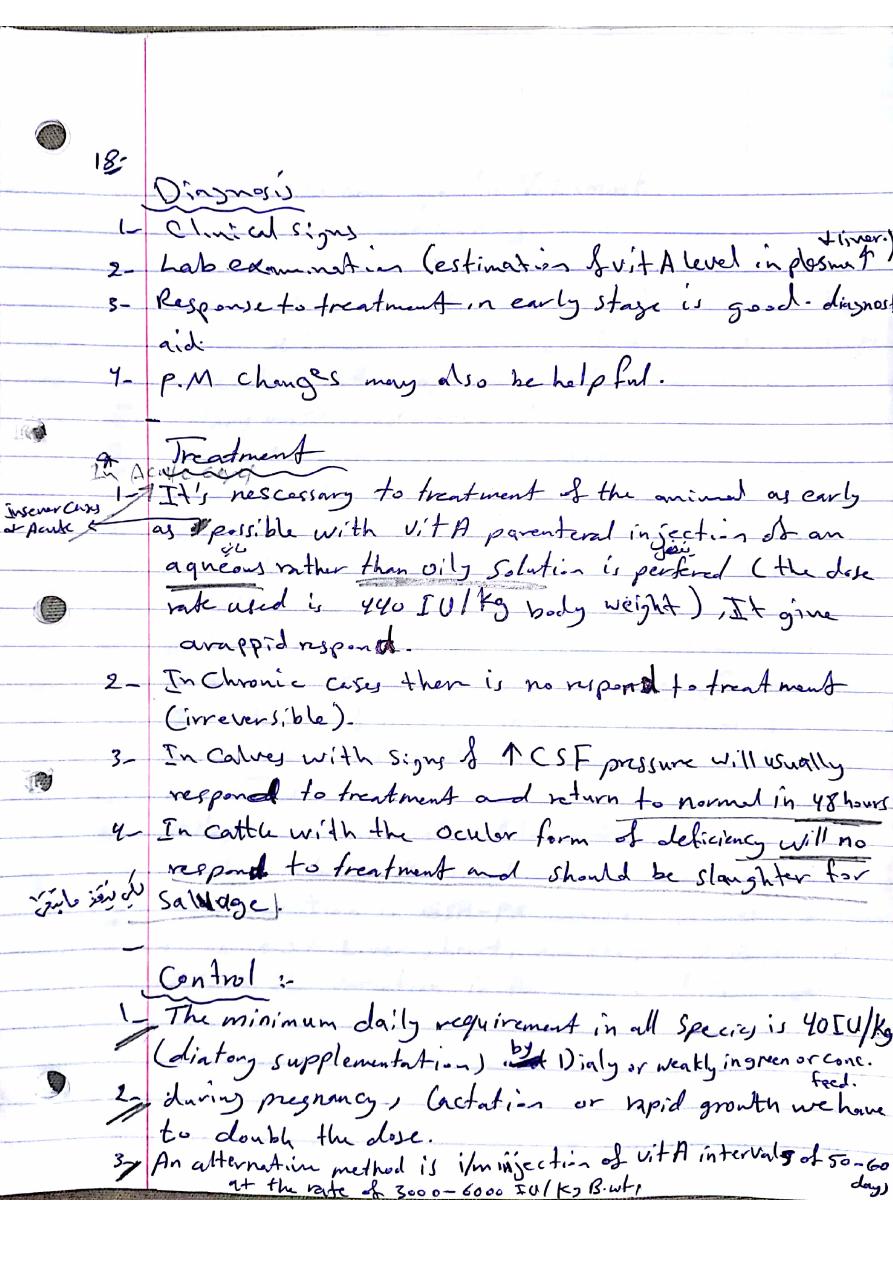 18-
Diagnosis
1- Clinical signs
+ liver.)
2- Lab examination (estimation of vit A level in plasma ↑
3- Response to treatment in early stage is good. diagnost
aid.
4- P.M changes may also be helpful.
Treatment
In Acute
1- It's nescessary to treatment of the animal as early
In sever cases
or Acute
as possible with vit A parenteral injection of an
aqueous rather than oily solution is perfered (the dose
rate used is 440 IU/kg body weight), It give
arappid respond.
2- In Chronic cases there is no respond to treatment
(irreversible).
3- In Calves with signs of ↑ CSF pressure will usually
respond to treatment and return to normal in 48 hours
4- In cattle with the ocular form of deficiency will no
respond to treatment and should be slaughter for
salvage.
Control :-
1- The minimum daily requirement in all species is 40 IU/kg
(diatory supplementation) by Dialy or weakly in green or conc.
feed.
2- during pregnancy, lactation or rapid growth we have
to double the dose.
3- An alternative method is i/m injection of vit A intervals of 50-60
days
at the rate of 3000-6000 IU/kg B.wt,